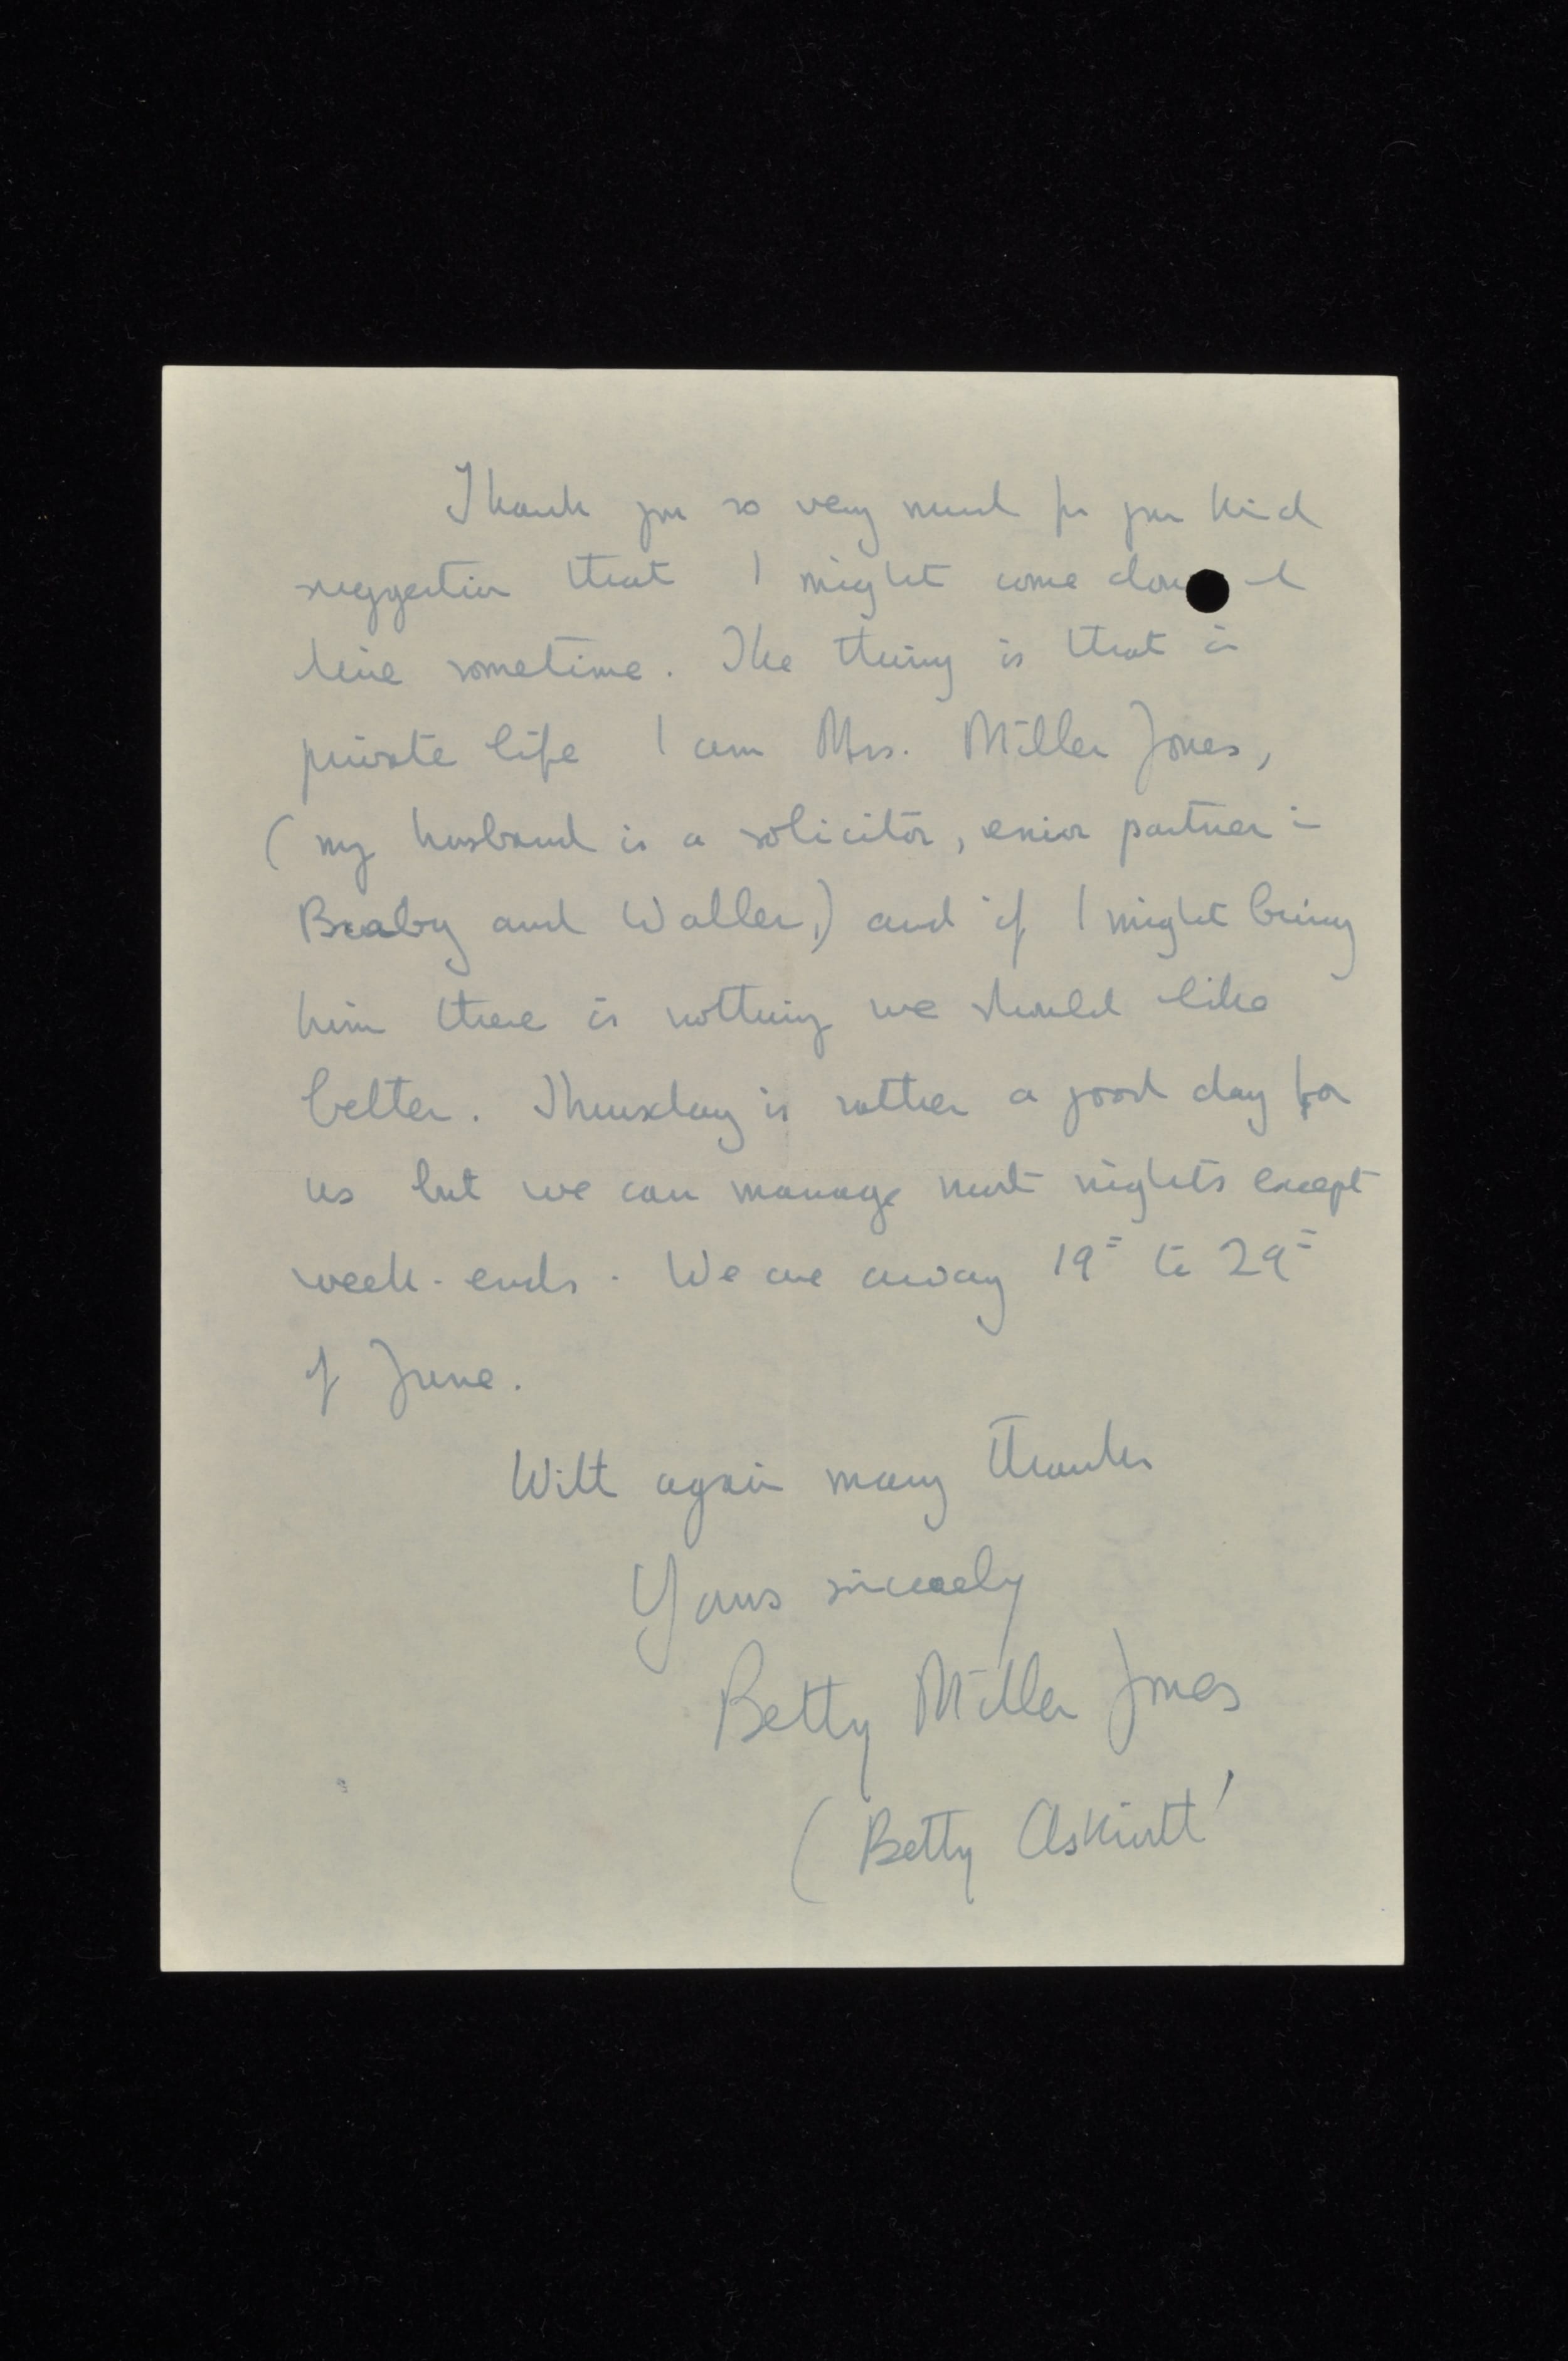 Thank you so very much for your kind
suggestion that I might come down &
dine sometime. The thing is that in
private life I am Mrs. Miller Jones,
(my husband is a solicitor, senior partner in
Braby and Waller,) and if I might bring
him there is nothing we should like
better. Thursday is rather a good day for
us but we can manage most nights except
week-ends. We are away 19= to 29=
of June.
With again many thanks
Yours sincerely
Betty Miller Jones
(Betty Askwith)